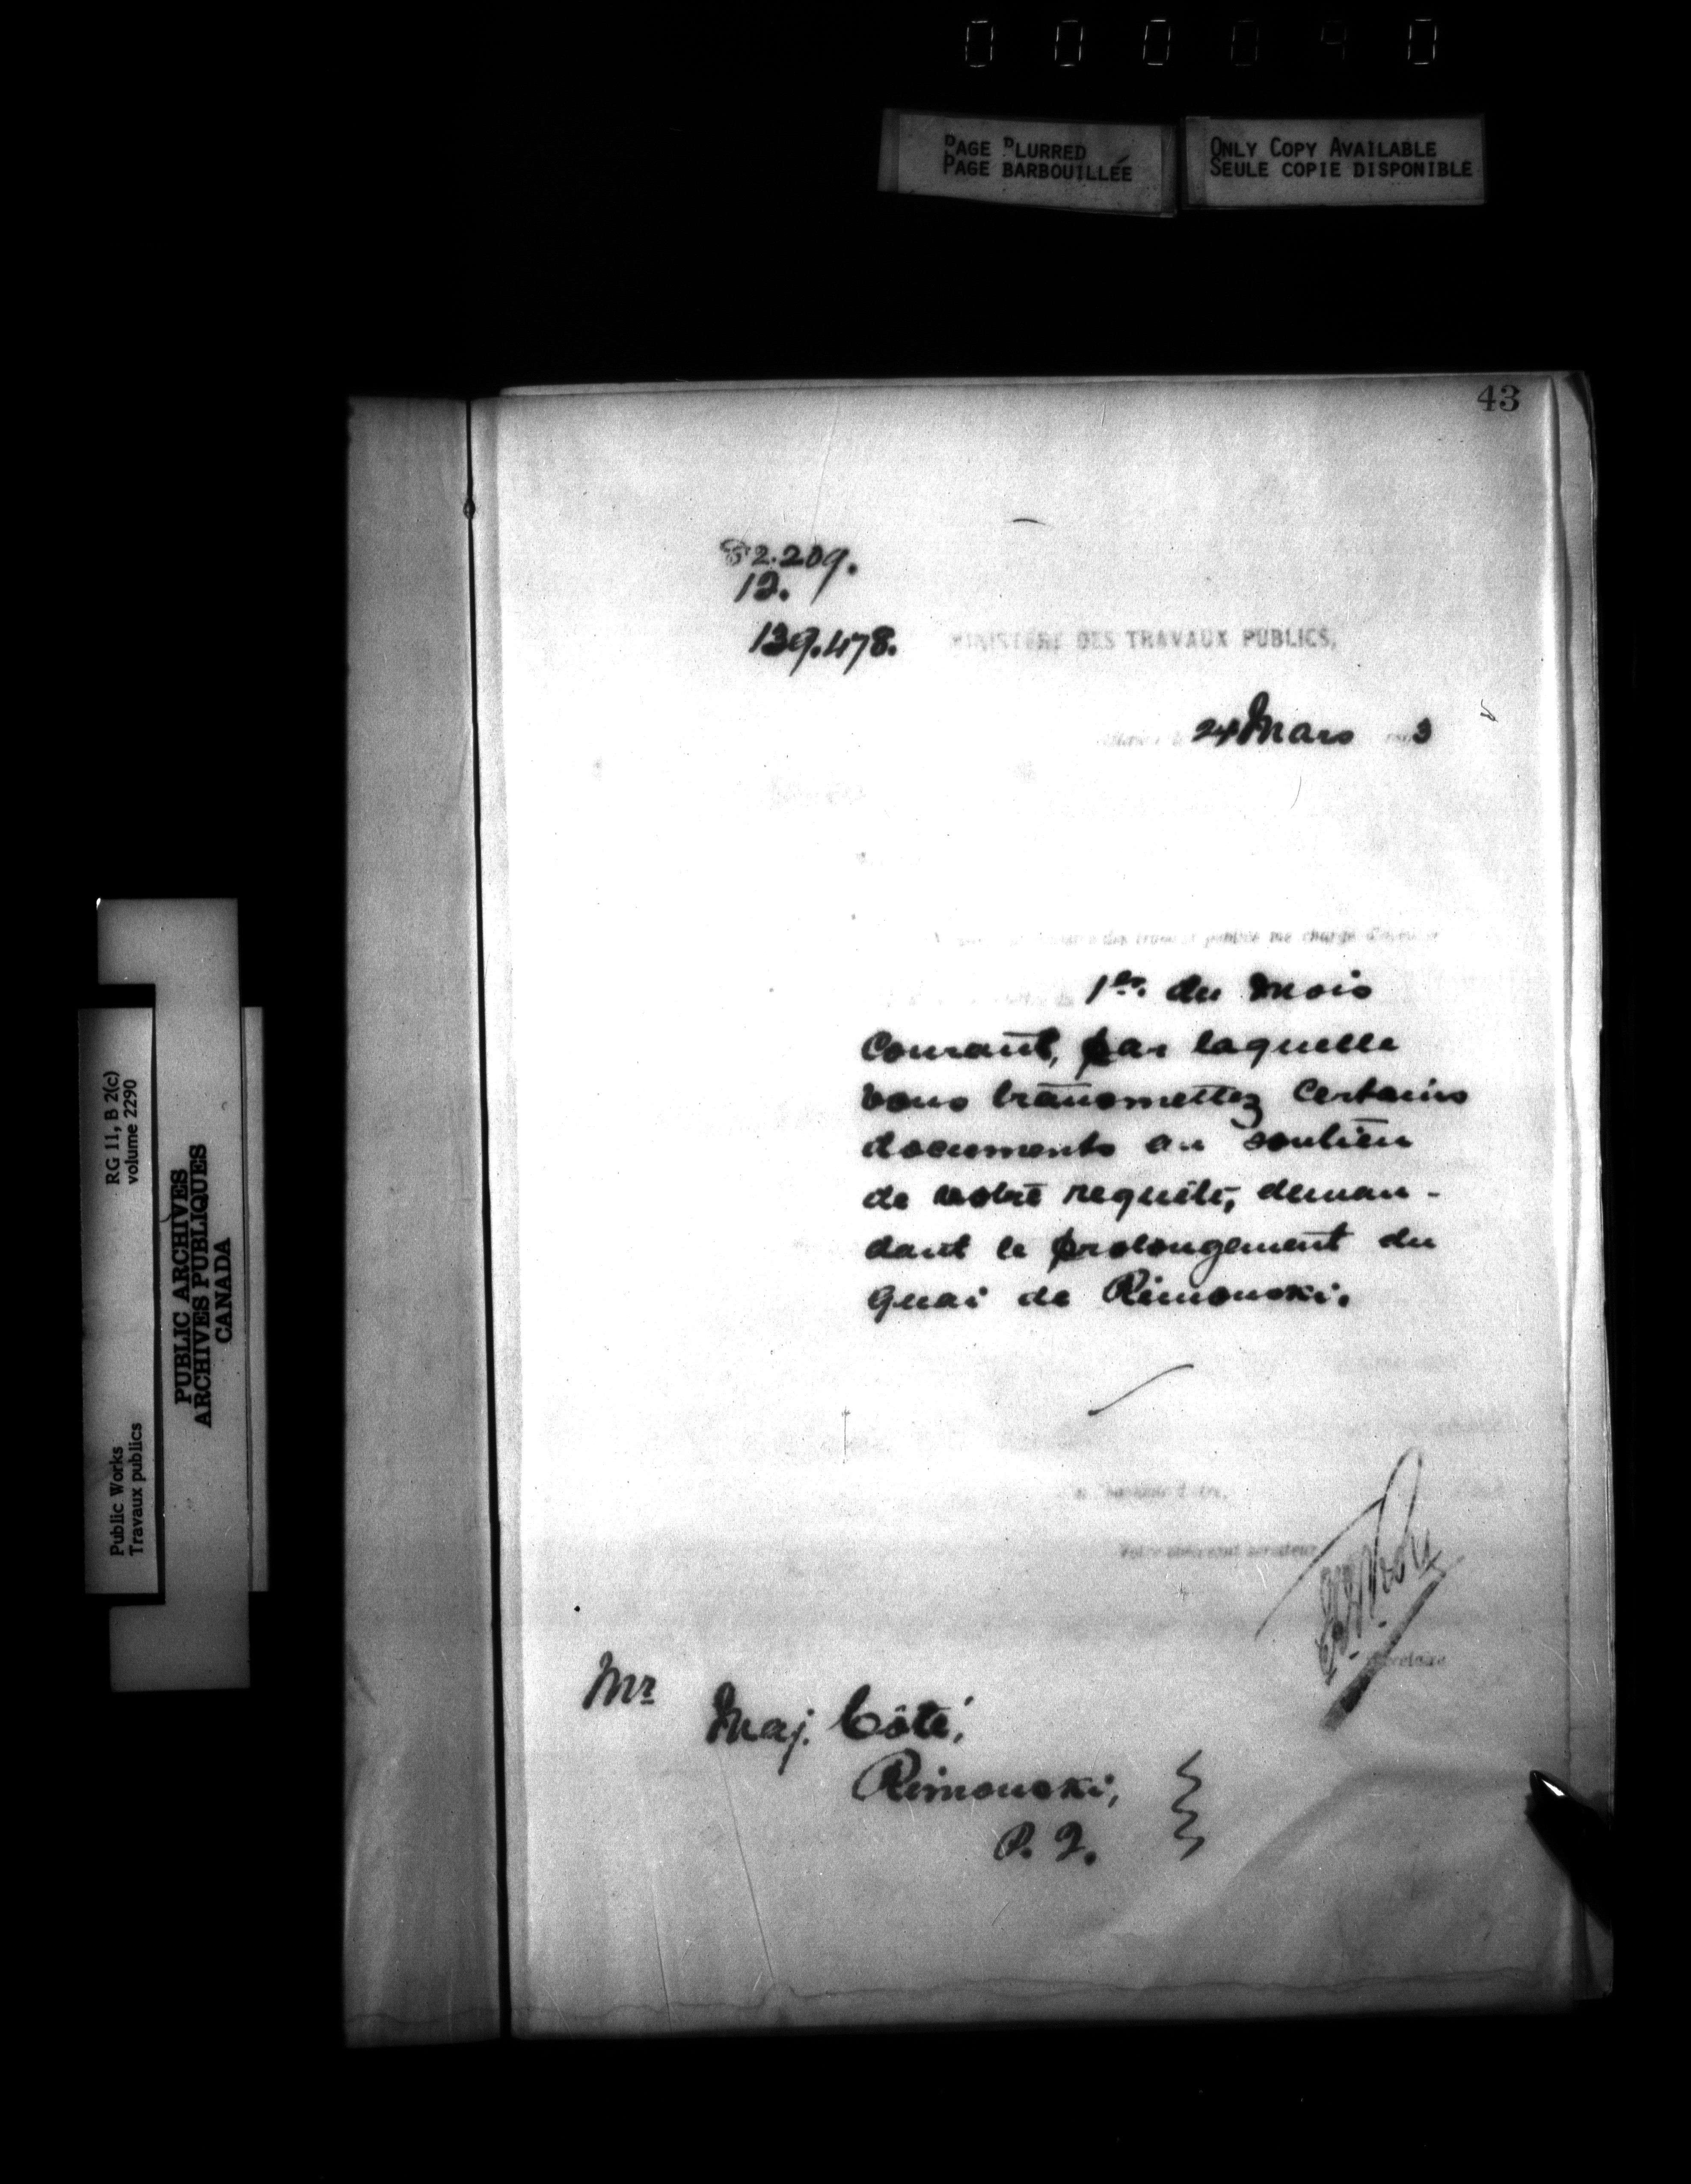 0 0 0 0 4 0
PAGE BLURRED
PAGE BARBOUILLÉE
ONLY COPY AVAILABLE
SEULE COPIE DISPONIBLE
43
2.209.
12.
139.478.
MINISTÈRE DES TRAVAUX PUBLICS,
24 Mars 3
des travaux publics me charge d'accuser
1er. du mois
courant, par laquelle
vous transmettez certains
documents au soutien
de votre requête, deman-
dant le prolongement du
quai de Rimouski.
Votre obéissant serviteur
Secrétaire
Mr
Maj. Côté,
Rimouski,
P. Q.
RG 11, B 2(c)
volume 2290
Public Works
Travaux publics
PUBLIC ARCHIVES
ARCHIVES PUBLIQUES
CANADA